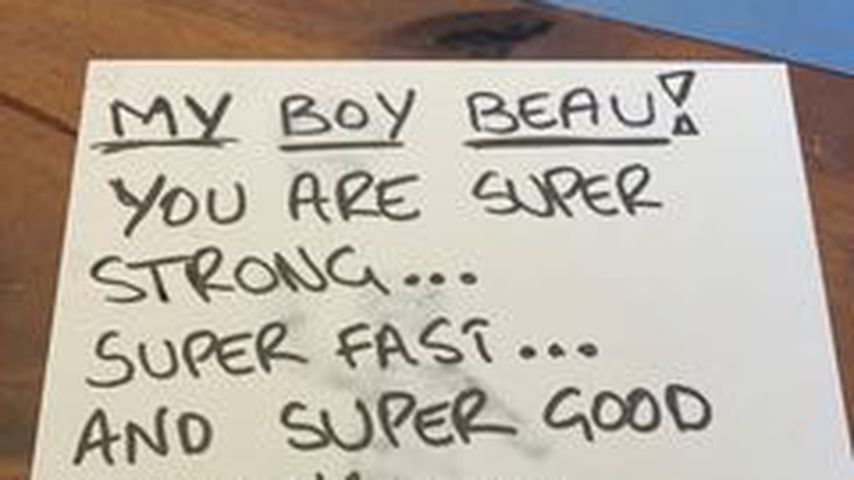 MY BOY BEAU!
YOU ARE SUPER
STRONG...
SUPER FAST...
AND SUPER GOOD